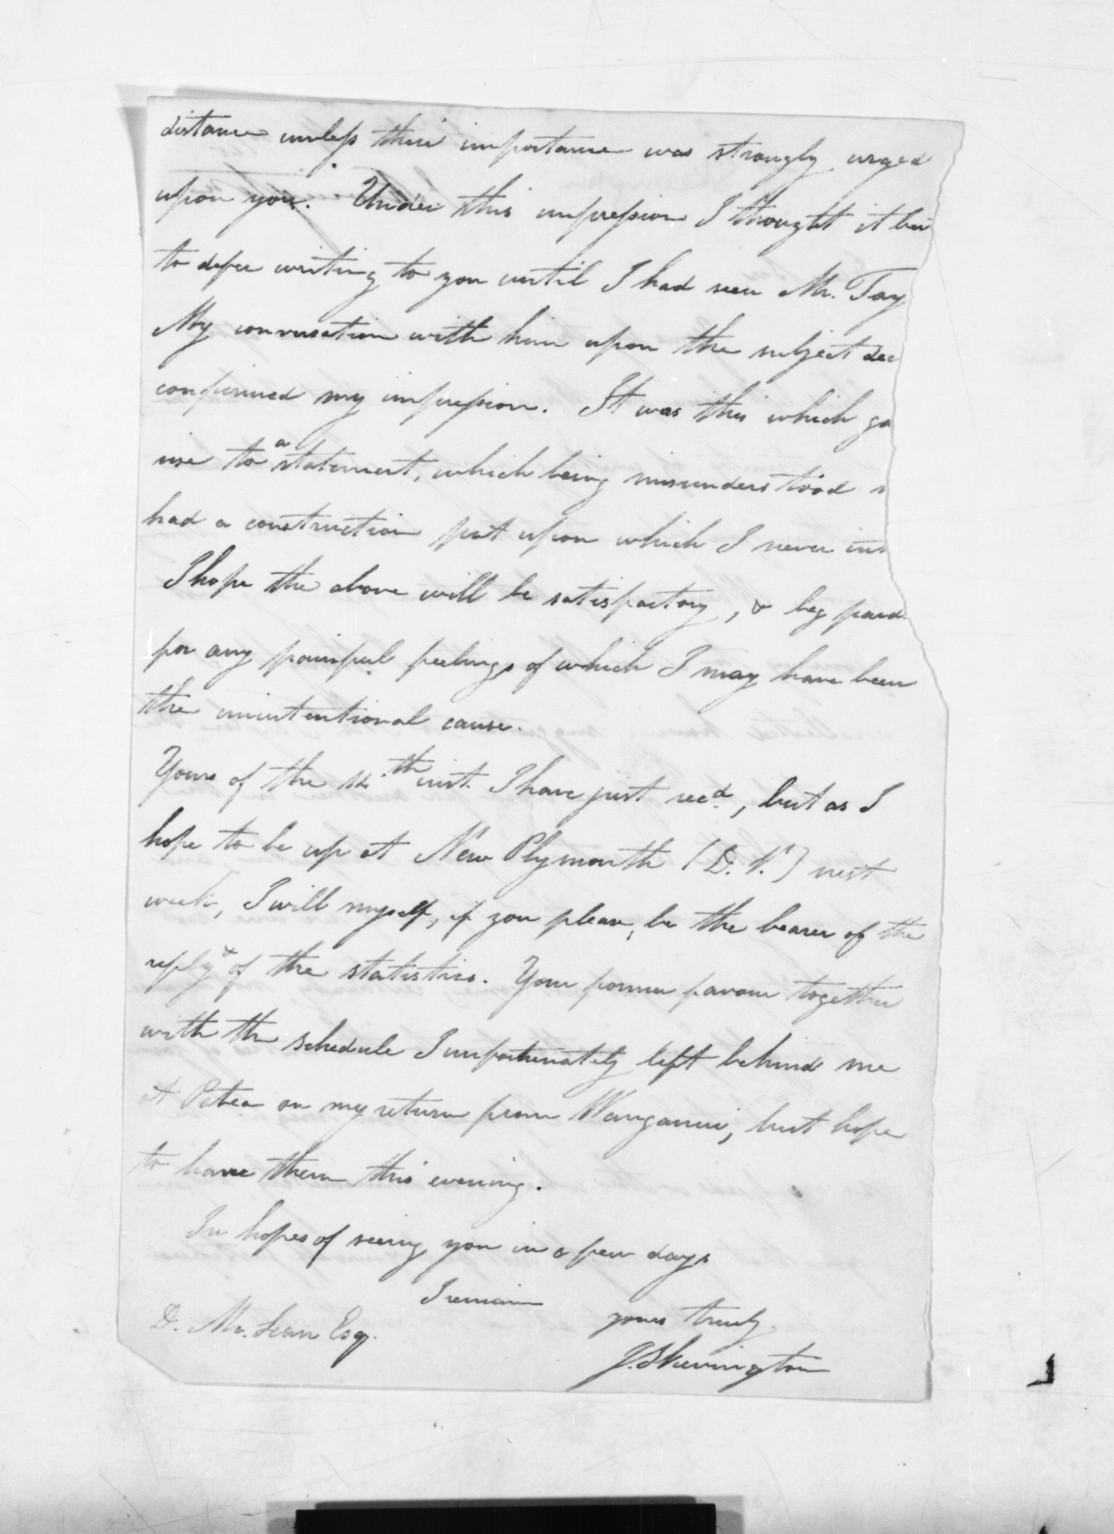 distance unless their importance was strongly urged
upon you. Under this impression I thought it
to defer writing to you until I had seen Mr. Tay
My conversation with him upon the subject
confirmed my impression. It was this which ga
rise to a statement, which being misunderstood
had a construction put upon which I never int
I hope the above will be satisfactory, & beg pard
for any painful feelings of which I may have been
the unintentional cause.
Yours of the 14th inst. I have just recd., but as I
hope to be up at New Plymouth (D.V.) next
week, I will myself, if you please, be the bearer of the
reply & of the statistics. Your former favour together
with the schedule I unfortunately left behind me
at Patea on my return from Wanganui, but hope
to have them this evening.
In hopes of seeing you in a few days
I remain
yours truly.
D. Mc. Lean Esq.
J. Skevington